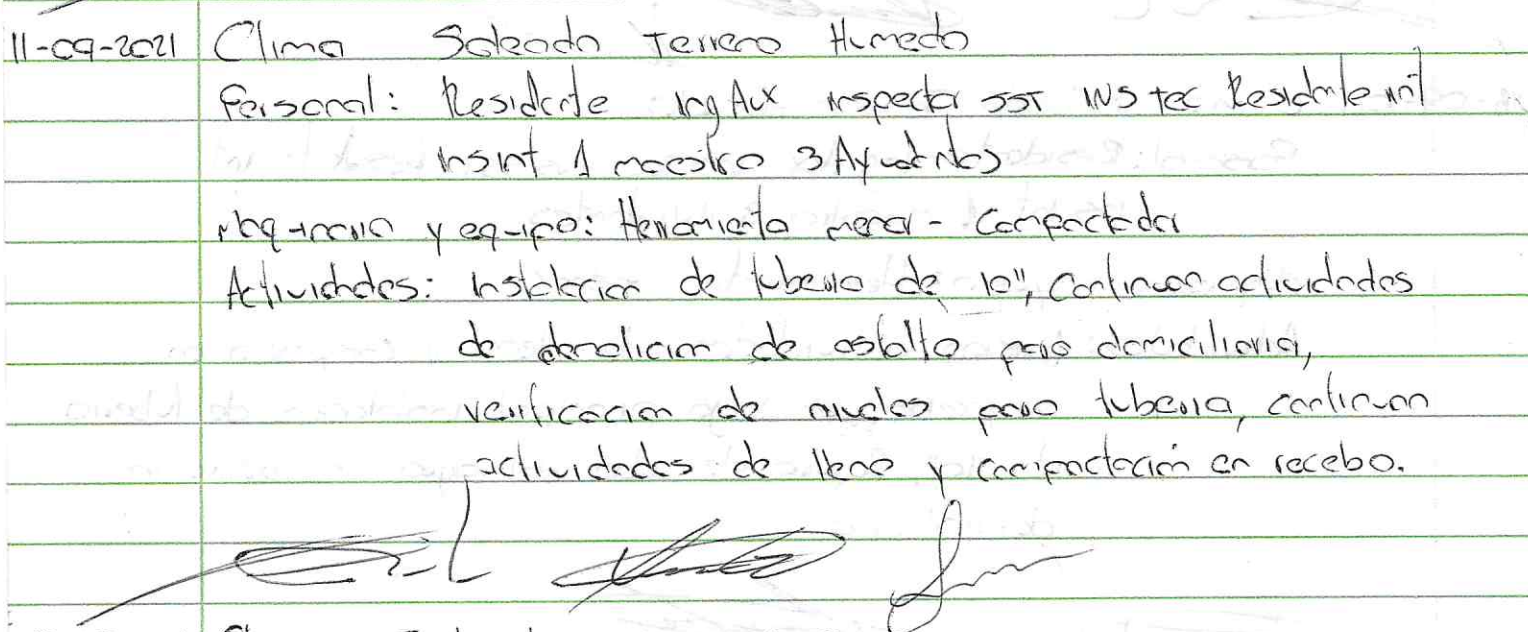 11-09-2021 Clima Soleado Terreno Humedo
Personal: Residente ing Aux inspector SST INS tec Residente int
insint 1 maestro 3 Ayudantes
Maquinaria y equipo: Herramienta menor - Compactador
Actividades: instalacion de tuberia de 10", Continuan actividades
de demolicion de asfalto para domiciliaria,
verificacion de niveles para tuberia, continuan
actividades de lleno y compactación en recebo.